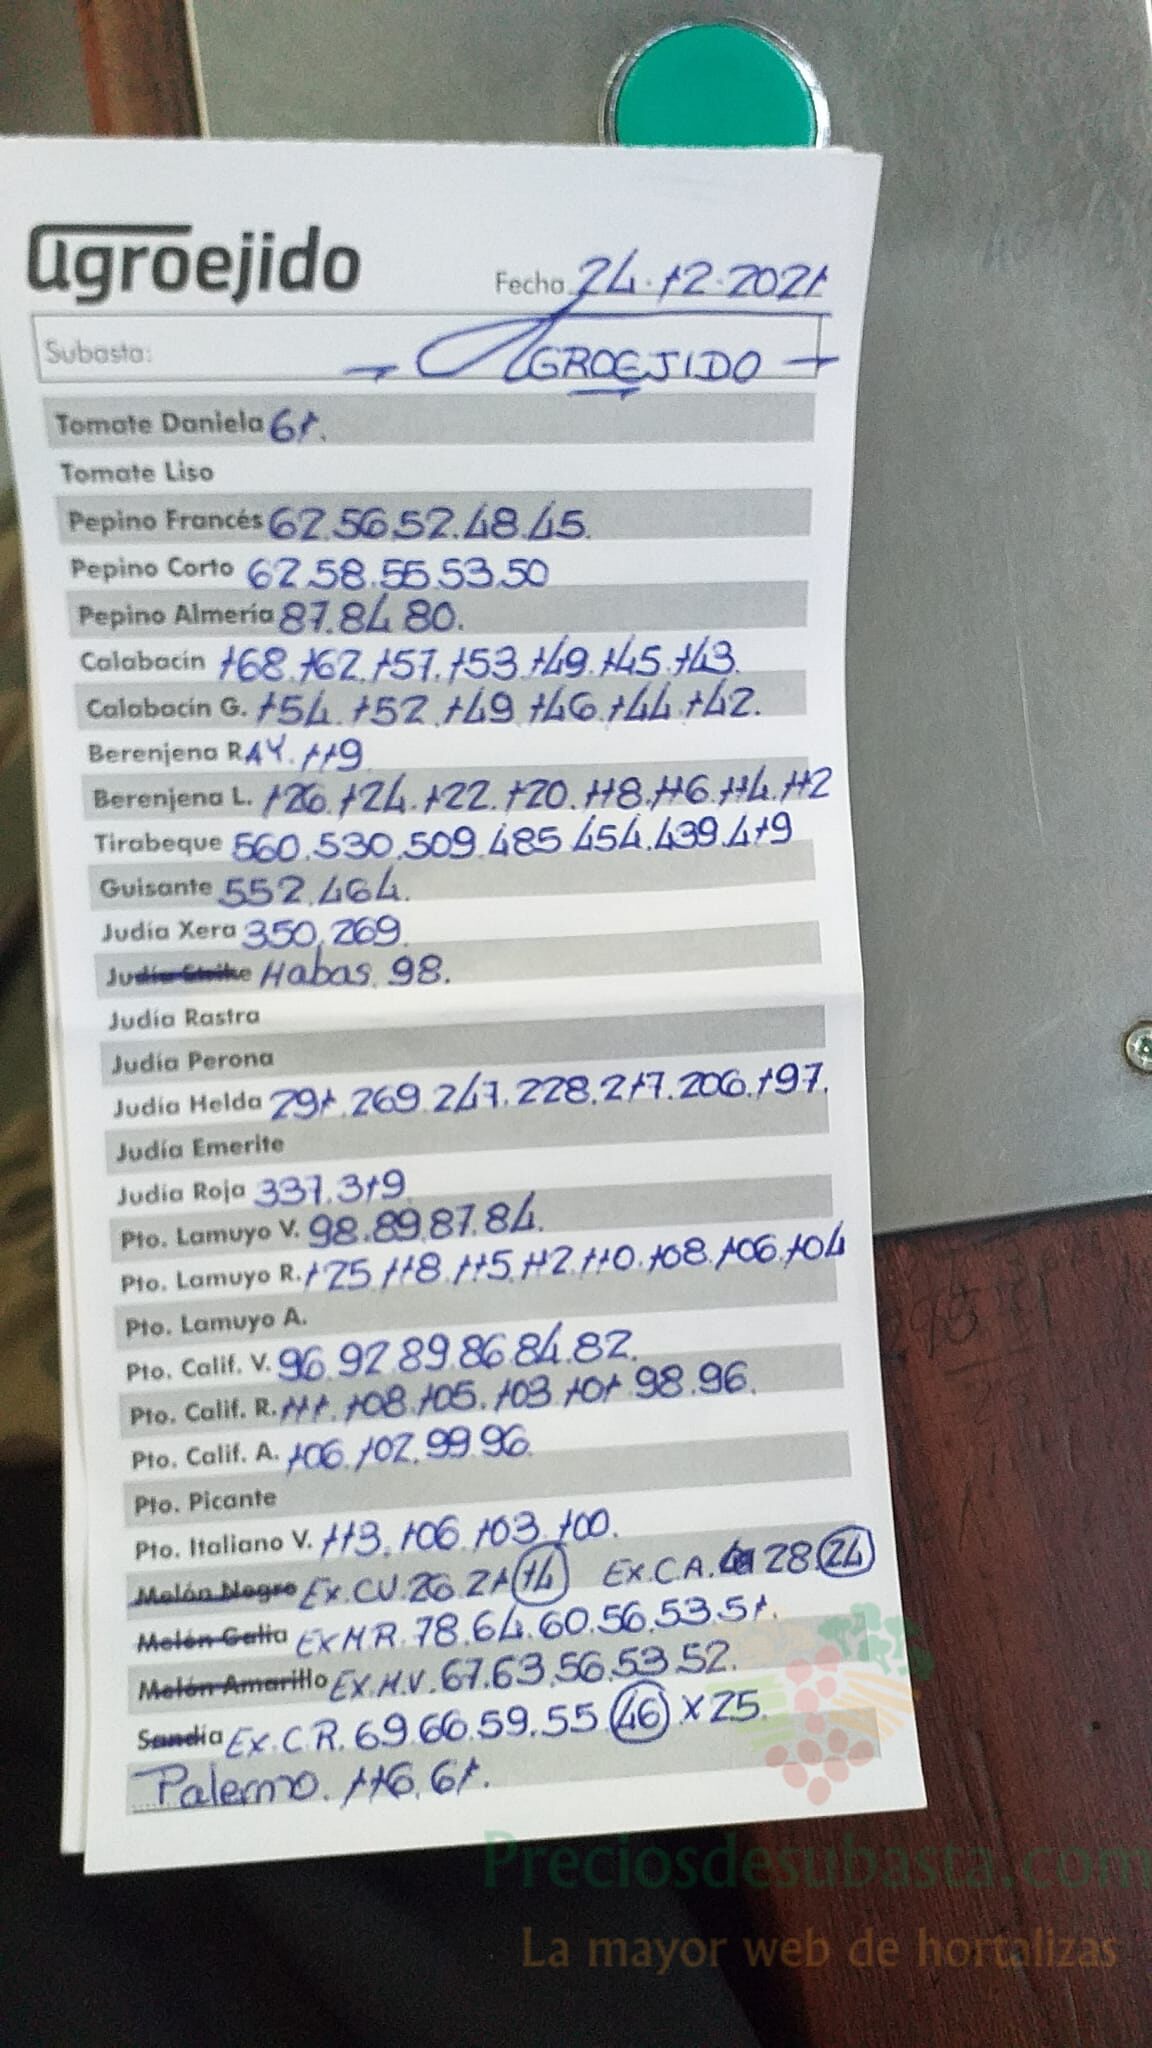 agroejido
Fecha 24.12.2021
Subasta: AGROEJIDO
Tomate Daniela 61.
Tomate Liso
Pepino Francés 62.56.52.48.45.
Pepino Corto 62.58.55.53.50
Pepino Almería 87.84.80.
Calabacín 168.162.157.153.149.145.143.
Calabacín G. 154.152.149.146.144.142.
Berenjena RAY. 119
Berenjena L. 126.124.122.120.118.116.114.112
Tirabeque 560.530.509.485.454.439.419
Guisante 552.464.
Judía Xera 350.269.
Judía Strike Habas. 98.
Judía Rastra
Judía Perona
Judía Helda 291.269.247.228.217.206.197.
Judía Emerite
Judía Roja 337.319
Pto. Lamuyo V. 98.89.87.84.
Pto. Lamuyo R. 125.118.115.112.110.108.106.104
Pto. Lamuyo A.
Pto. Calif. V. 96.92.89.86.84.82.
Pto. Calif. R. 111.108.105.103.101.98.96.
Pto. Calif. A. 106.102.99.96.
Pto. Picante
Pto. Italiano V. 113.106.103.100.
Melón Negro Ex.CV.26.21 14 Ex.C.A. 28. 24
Melón Galia Ex M.R. 78.64.60.56.53.51.
Melón Amarillo Ex.M.V. 67.63.56.53.52.
Sandía Ex.C.R. 69.66.59.55 46 x 25.
Palermo. 116.61.
Preciosdesubasta.com
La mayor web de hortalizas